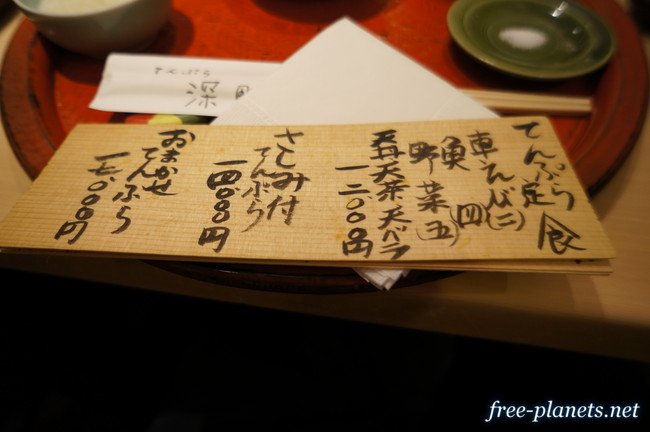 てんぷら定食
車えび(二)
魚 四
野菜(五)
天丼天茶天バラ
一二〇〇〇円
さしみ付
てんぷら
一四〇〇〇円
おまかせ
てんぷら
一七〇〇〇円
てんぷら
深
free-planets.net